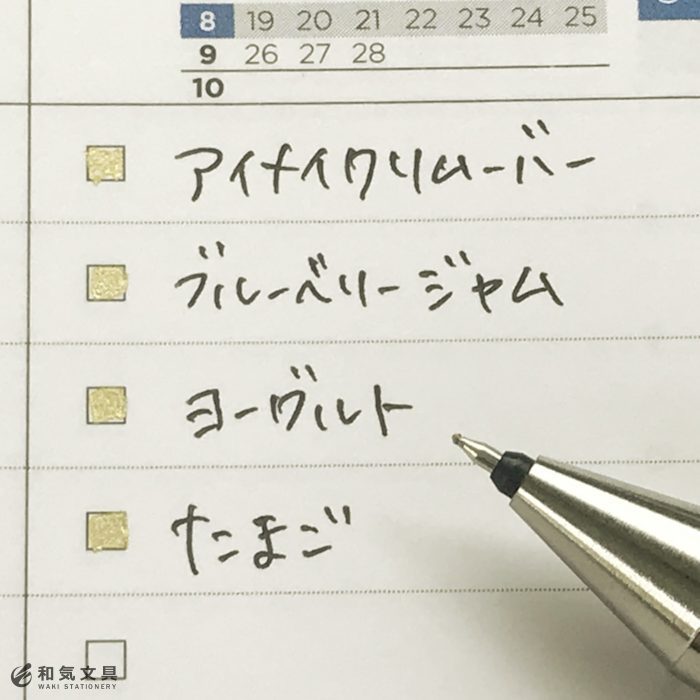 8 19 20 21 22 23 24 25
9 26 27 28
10
アイメイクリムーバー
ブルーベリージャム
ヨーグルト
たまご
和気文具
WAKI STATIONERY